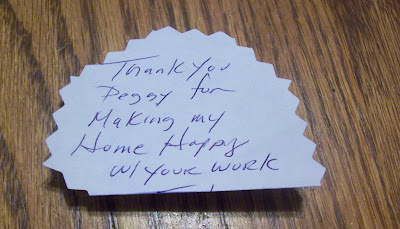 Thank You
Peggy for
Making my
Home Happy
w/ your work